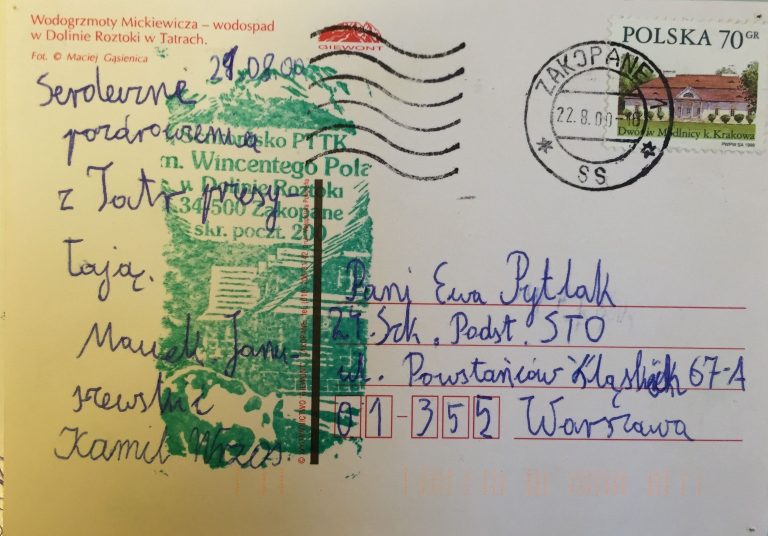 Wodogrzmoty Mickiewicza – wodospad
w Dolinie Roztoki w Tatrach.
Fot. © Maciej Gąsienica
GIEWONT
ZAKOPANE 1
22.8.00-18
SS
POLSKA 70 GR
Dwór w Modlnicy k. Krakowa
PWPW SA 1998
21.08.00
Serdeczne
pozdrowienia
z Tatr przesy-
łają.
Marek Janu-
szewski i
Kamil
Schronisko PTTK
im. Wincentego Pola
w Dolinie Roztoki
34-500 Zakopane
skr. poczt. 200
Pani Ewa Pytlak
27. Szk. Podst. STO
ul. Powstańców Śląskich 67-A
01-355 Warszawa